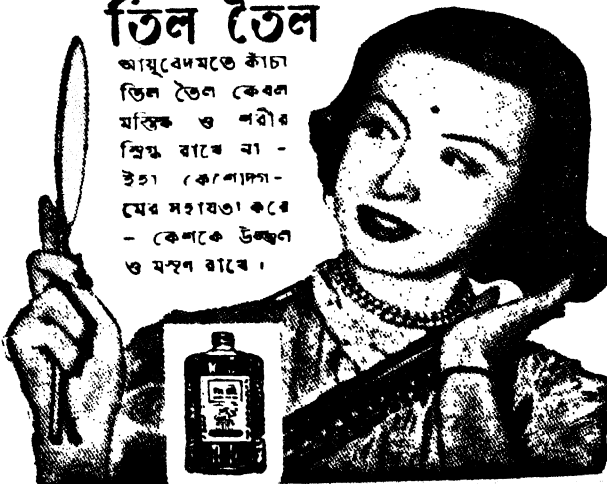 তিল তৈল
আয়ুর্বেদমতে কাঁচা
তিল তৈল কেবল
মস্তিষ্ক ও শরীর
স্নিগ্ধ রাখে না -
ইহা কেশোদ্গ-
মের সহায়তা করে
- কেশকে উজ্জ্বল
ও মসৃণ রাখে।